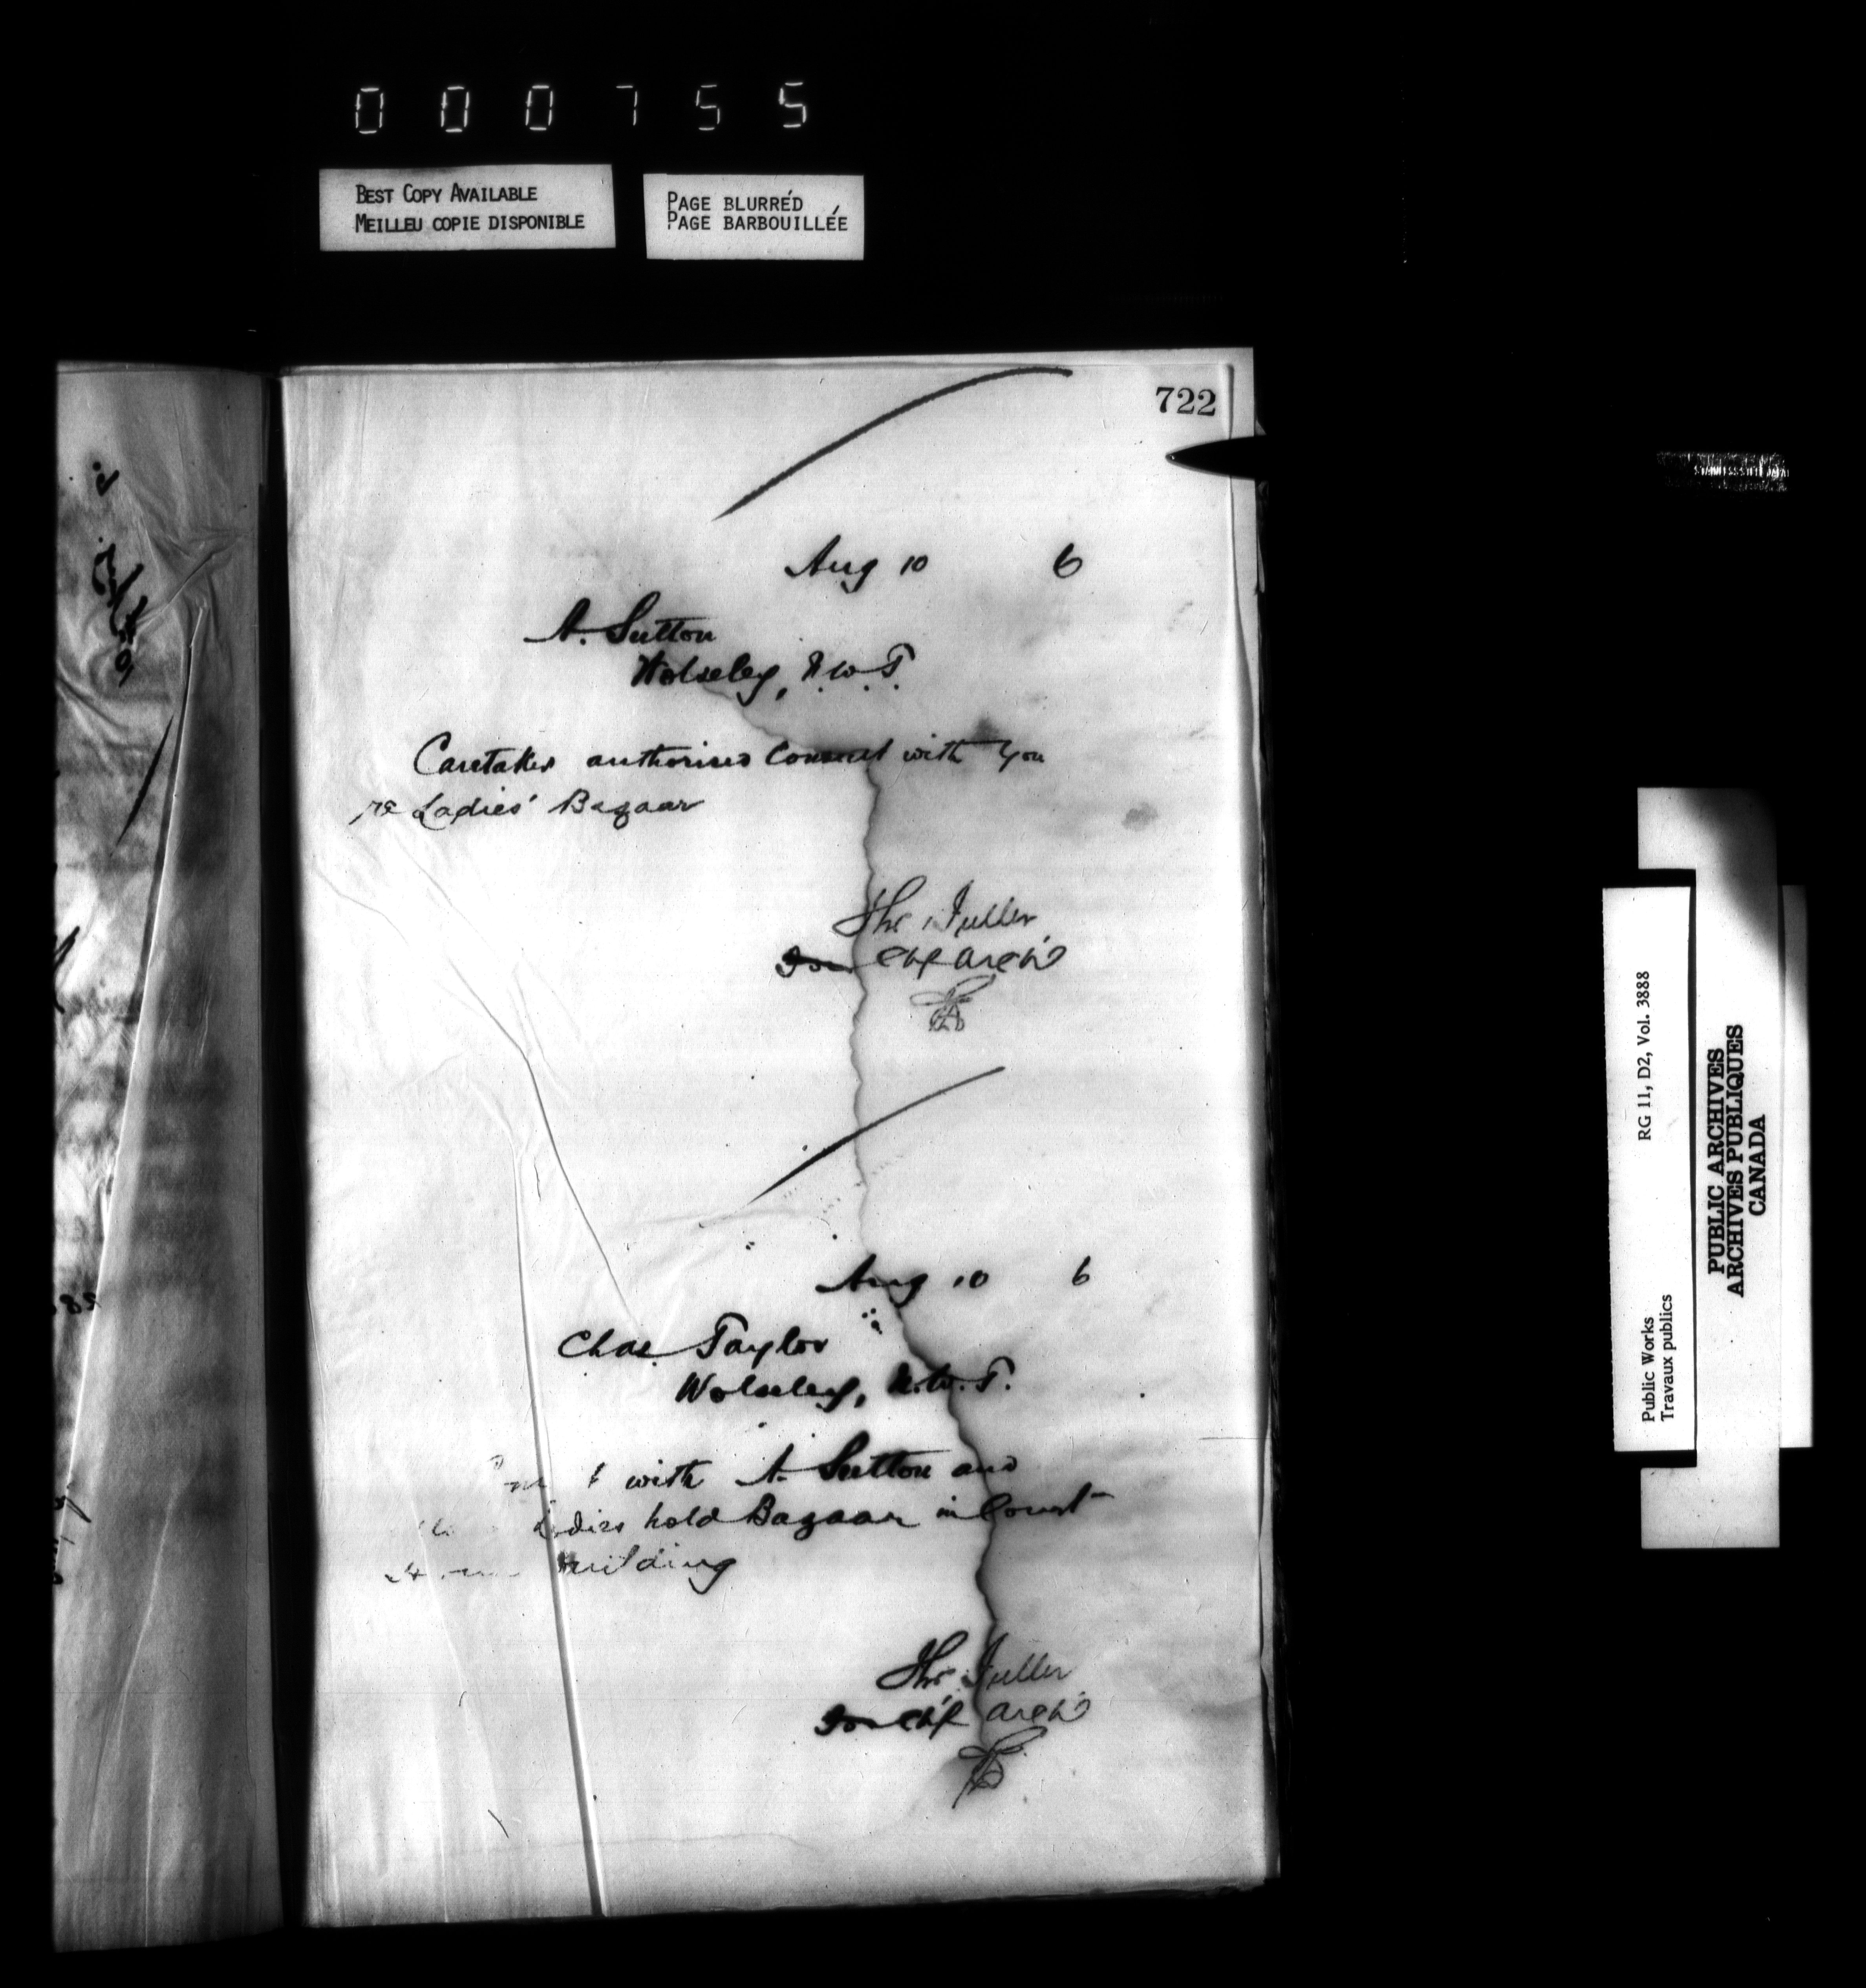 000755
BEST COPY AVAILABLE
MEILLEU COPIE DISPONIBLE
PAGE BLURRÉD
PAGE BARBOUILLÉE
722
Aug 10 6
A. Sutton
Wolseley, N.W.T.
Caretaker authorised Consult with you
re Ladies' Bazaar
Thos Fuller
Chf Arch't
Aug 10 6
Chas. Taylor
Wolseley, N.W.T.
with A. Sutton and
Ladies hold Bazaar in Court
Building
Thos Fuller
Chf Arch't
RG 11, D2, Vol. 3888
Public Works
Travaux publics
PUBLIC ARCHIVES
ARCHIVES PUBLIQUES
CANADA